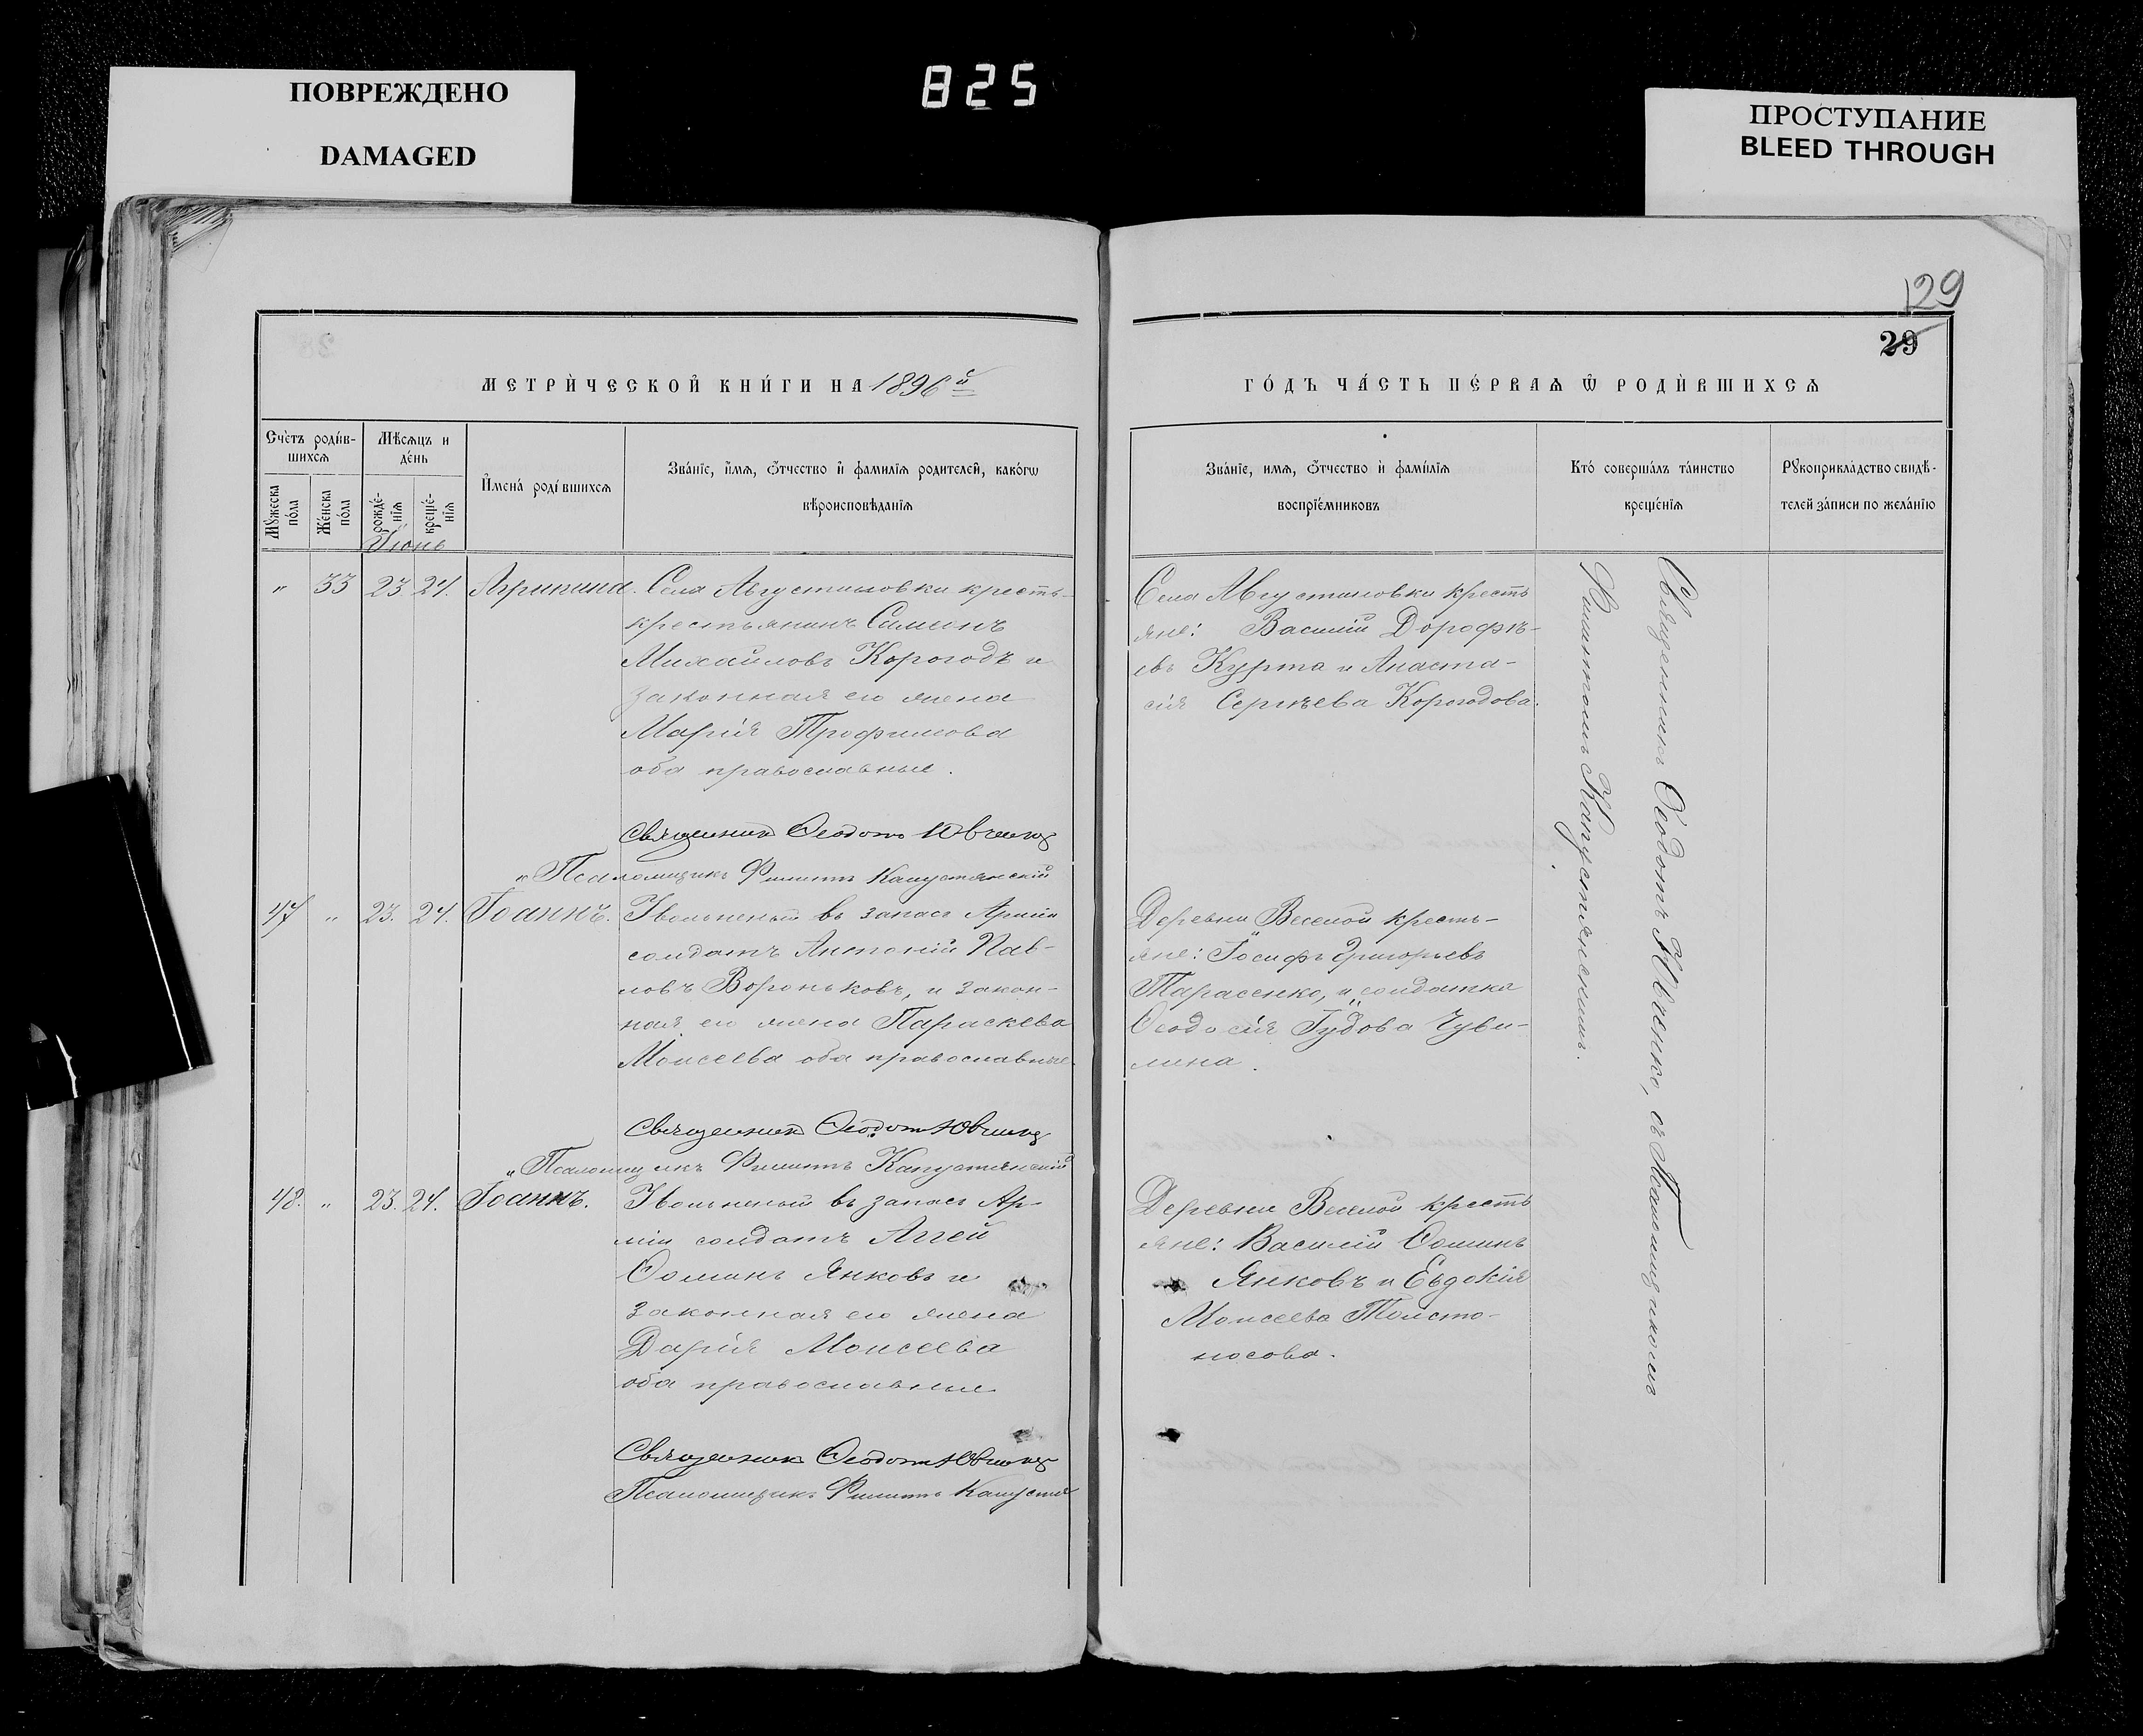 ПОВРЕЖДЕНО
DAMAGED
825
ПРОСТУПАНИЕ
BLEED THROUGH
129
29
МЕТРИЧЕСКОЙ КНИГИ НА 1896й
ГОДЪ ЧАСТЬ ПЕРВАЯ Ѿ РОДИВШИХСЯ
Счетъ родив-
шихся
Мужеска пола
Женска пола
Мѣсяцъ и
день
рожде-
нія
креще-
нія
Имена родившихся
Званіе, имя, ѻтчество и фамилія родителей, какогѡ
вѣроисповѣданія
Званіе, имя, ѻтчество и фамилія
воспріемниковъ
Кто совершалъ таинство
крещенія
Рукоприкладство свидѣ-
телей записи по желанію
Іюнь
" 33 23 24. Агрипина. Села Августиновки кресть-
крестьянинъ Симеонъ
Михаиловъ Корогодъ и
законная его жена
Марія Трофимова
оба православные.
Священникъ Ѳеодотъ Ювченко
"Псаломщикъ Филиппъ Капустянскій
Села Августиновки кресть
яне: Василій Дорофѣ-
евъ Курта и Анаста-
сія Сергѣева Корогодова.
47 " 23. 24. Іоаннъ. Увольненый въ запасъ Арміи
солдатъ Антоній Пав-
ловъ Вороньковъ, и закон-
ная его жена Параскева
Моисеева оба православные.
Священникъ Ѳеодотъ Ювченко
"Псаломщикъ Филиппъ Капустянскій
Деревни Веселой кресть-
яне: Іосифъ Григорьевъ
Тарасенко, и солдатка
Ѳеодосія Гудова Чуви-
лина.
48. " 23. 24. Іоаннъ. Увольненый въ запасъ Ар-
міи солдатъ Аггей
Ѳоминъ Янковъ и
законная его жена
Дарія Моисеева
оба православные
Священникъ Ѳеодотъ Ювченко
Псаломщикъ Филиппъ Капустя
Деревни Веселой кресть
яне: Василій Ѳоминъ
Янковъ и Евдокія
Моисеева Толсто-
носова.
Священникъ Ѳеодотъ Ювченко, съ Псаломщикомъ
Филиппомъ Капустянскимъ.